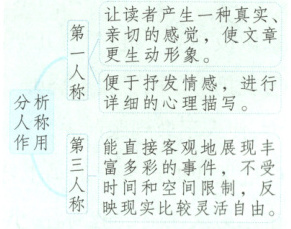 分析
人称
作用
第一人称
让读者产生一种真实、
亲切的感觉，使文章
更生动形象。
便于抒发情感，进行
详细的心理描写。
第三人称
能直接客观地展现丰
富多彩的事件，不受
时间和空间限制，反
映现实比较灵活自由。